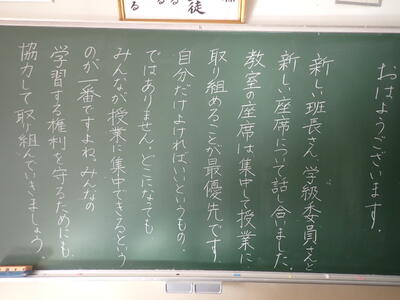 徒
る
おはようございます。
新しい班長さん、学級委員さんと
新しい座席について話し合いました。
教室の座席は集中して授業に
取り組めることが最優先です。
自分だけよければいいというもの
ではありません。どこになっても
みんなが授業に集中できるという
のが一番ですよね。みんなの
学習する権利を守るためにも、
協力して取り組んでいきましょう。